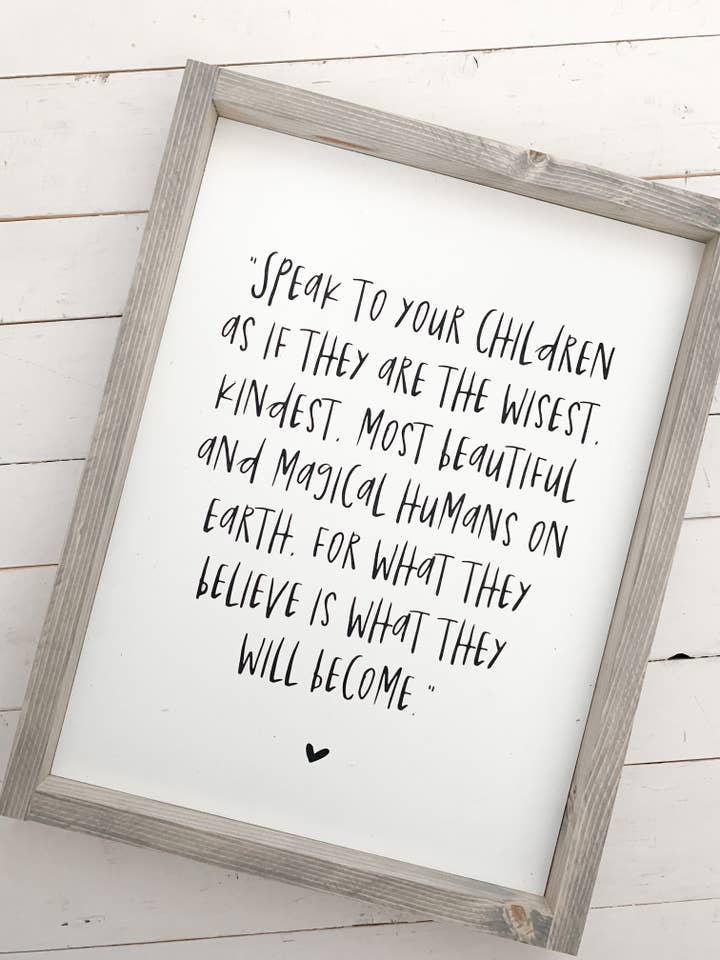 "SPEAK TO YOUR CHILDREN
AS IF THEY ARE THE WISEST,
KINDEST, MOST BEAUTIFUL
AND MAGICAL HUMANS ON
EARTH. FOR WHAT THEY
BELIEVE IS WHAT THEY
WILL BECOME."